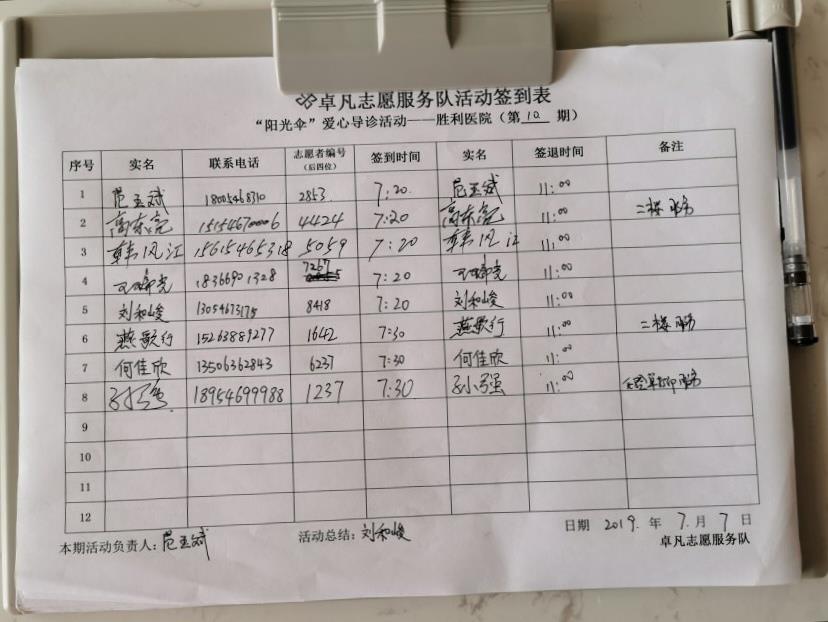 卓凡志愿服务队活动签到表
“阳光伞”爱心导诊活动——胜利医院（第 10 期）
序号 实名 联系电话 志愿者编号（后四位） 签到时间 实名 签退时间 备注
1 范玉斌 18005468310 2853 7:20 范玉斌 11:00
2 高东亮 15154670006 4424 7:20 高东亮 11:00 二楼 服务
3 韩风江 15615465318 5059 7:20 韩风江 11:00
4 18366901328 7267 7:20 11:00
5 刘和峻 13054673175 8418 7:20 刘和峻 11:00
6 燕歌行 15263889277 1642 7:30 燕歌行 11:00 二楼 服务
7 何佳欣 13506362843 6237 7:30 何佳欣 11:00
8 孙小强 18954699988 1237 7:30 孙小强 11:00 打印服务
9
10
11
12
本期活动负责人：范玉斌 活动总结：刘和峻 日期 2019. 年 7. 月 7 日
卓凡志愿服务队